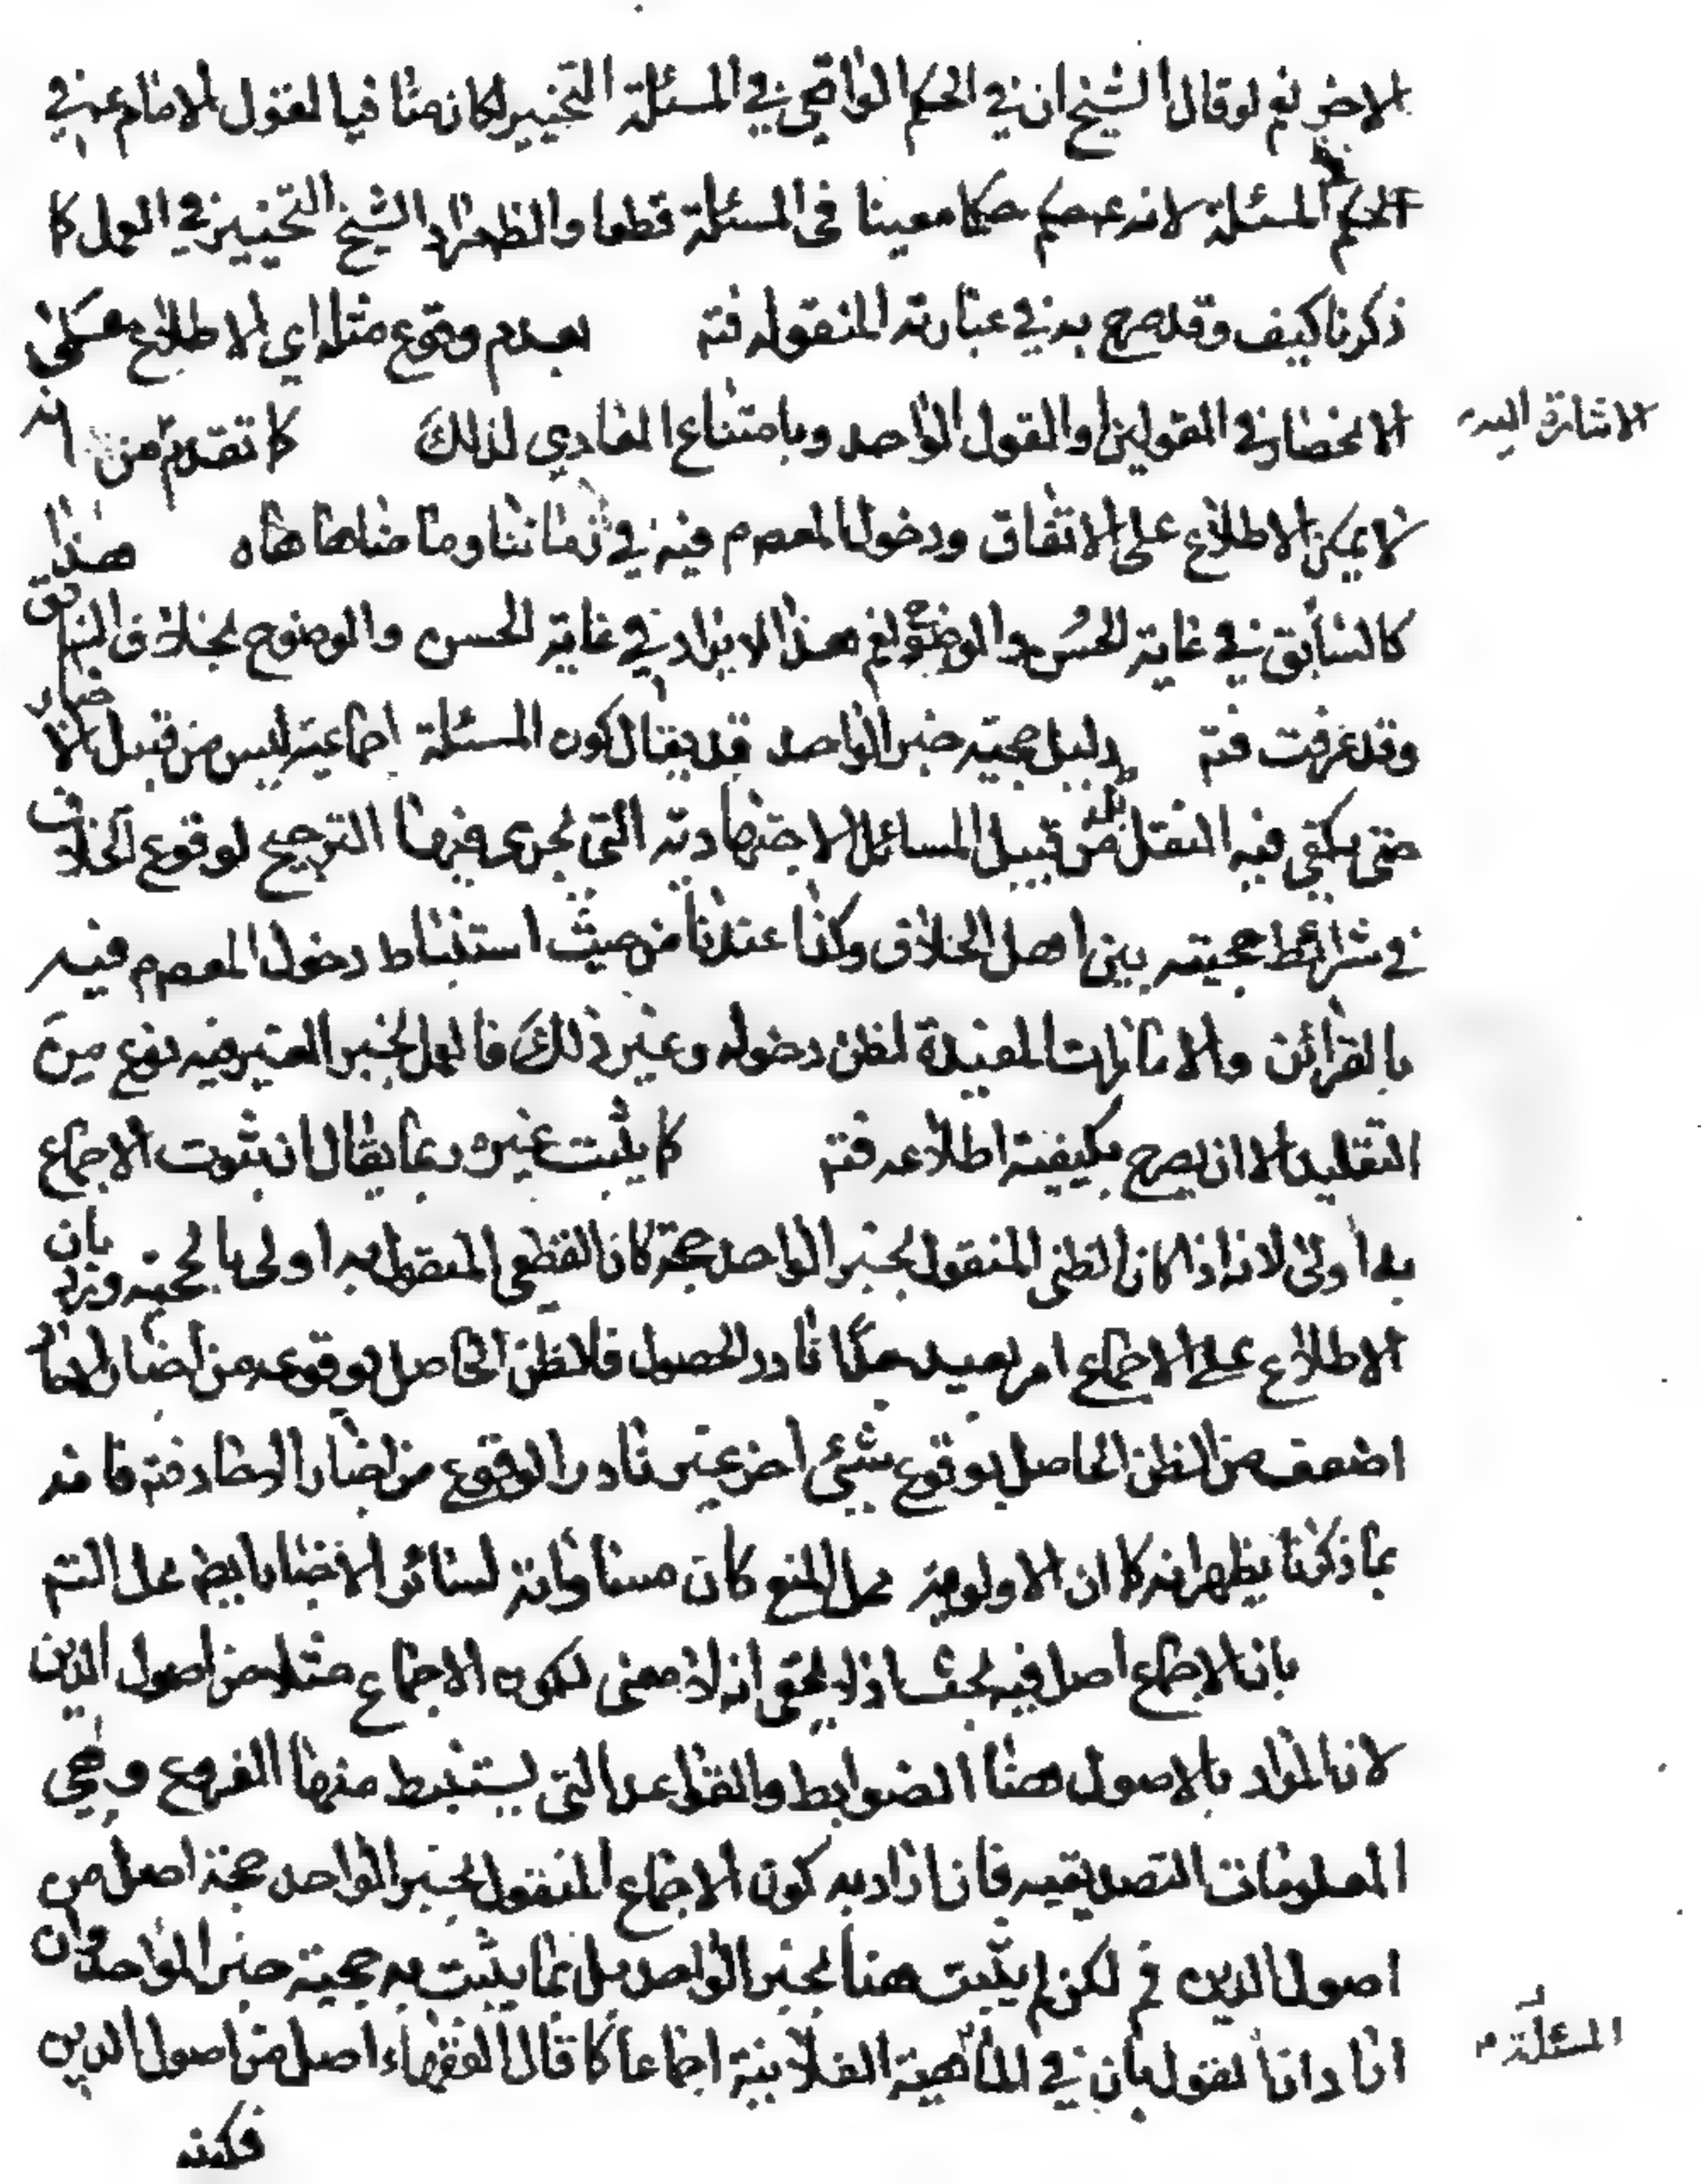 الاخر نعم لو قال الشيخ ان في الحكم الواقعي في المسئلة التخيير لكان منافيا لقول الامام ع في
الحكم المسئلة لانه ع حكم حكما معينا في المسئلة قطعا والظ مراد الشيخ التخيير في العمل كما
ذكرنا كيف وقد صرح به في عبارته المنقوله فتم بعدم وقوع مثله اي الاطلاع على
الانحصار في القولين او القول الواحد وبامتناع العادي لذلك كما تقدم من انه
الاشارة اليه
لا يمكن الاطلاع على الاتفاق ودخول المعصوم فيه في زماننا وما ضاهاها ه هذا
كالسابق في غاية الحسن والوضوح نعم هذا الايراد في غاية الحسن والوضوح بخلاف السابق
وقد عرفت فتم بدليل حجية خبر الواحد قد يقال كون المسئلة اجماعية ليس من قبيل الاخبار
حتى يكتفي فيه النقل بل من قبيل المسائل الاجتهادية التي يجري فيها الترجيح لوقوع الخلاف
في شرائط حجيته بين اهل الخلاف وكذا عندنا من حيث استنباط دخول المعصوم فيه
بالقرائن والامارات المفيدة لظن دخوله وغير ذلك فالعمل بخبر الغير فيه نوع من
التقليد الا ان يصرح بكيفية اطلاعه فتم كما يثبت غيره ربما يقال ان ثبوت الاجماع
به اولى لانه اذا كان الظني المنقول بخبر الواحد حجة كان القطعي المنقول به اولى بالحجية ورد بان
الاطلاع على الاجماع امر بعيد جدا نادر الحصول فالظن الحاصل بوقوعه من اخبار
اضعف من الظن الحاصل بوقوع شيء اخر غير نادر الوقوع من اخبار فتم فانه
بما ذكرنا يظهر انه كما ان الاولوية محل المنع كان مساواته لسائر الاخبار ايض محل التم
بان الاجماع اصل فيه بحث اذ لا يخفى انه لا معنى لكون الاجماع مثلا من اصول الدين
لان المراد بالاصول هنا الضوابط والقواعد التي يستنبط منها الفروع وهي
المعلومات التصديقيه فان اراد به كون الاجماع المنقول بخبر الواحد حجة اصل من
اصول الدين فم لكن لم يثبت هنا بخبر الواحد بل بما يثبت به حجية خبر الواحد وان
اراد انا نقول بان في الفلانية اجماعا كما قال الفقهاء اصل من اصول الدين
المسئلة
فكونه